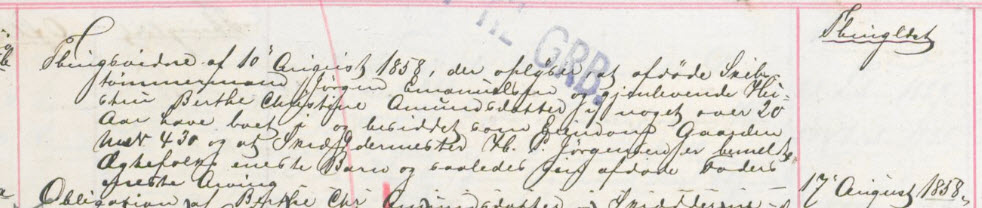 Thinglæst
Thingsvidne af 10' August 1858, der oplyser, at afdøde Skibs-
tømmermand Jørgen Emanuelsen og gjenlevende Hu-
stru Berthe Christine Amundsdatter i noget over 20
Aar have boet i og besiddet som Eiendom Gaarden
No 430 og at Skrædermester H. P. Jørgensen er bemeldte
Ægtefolks eneste Barn og saaledes sin afdøde Faders
eneste Arving
17' August 1858.
Obligation af Berthe Chr Amundsdatter